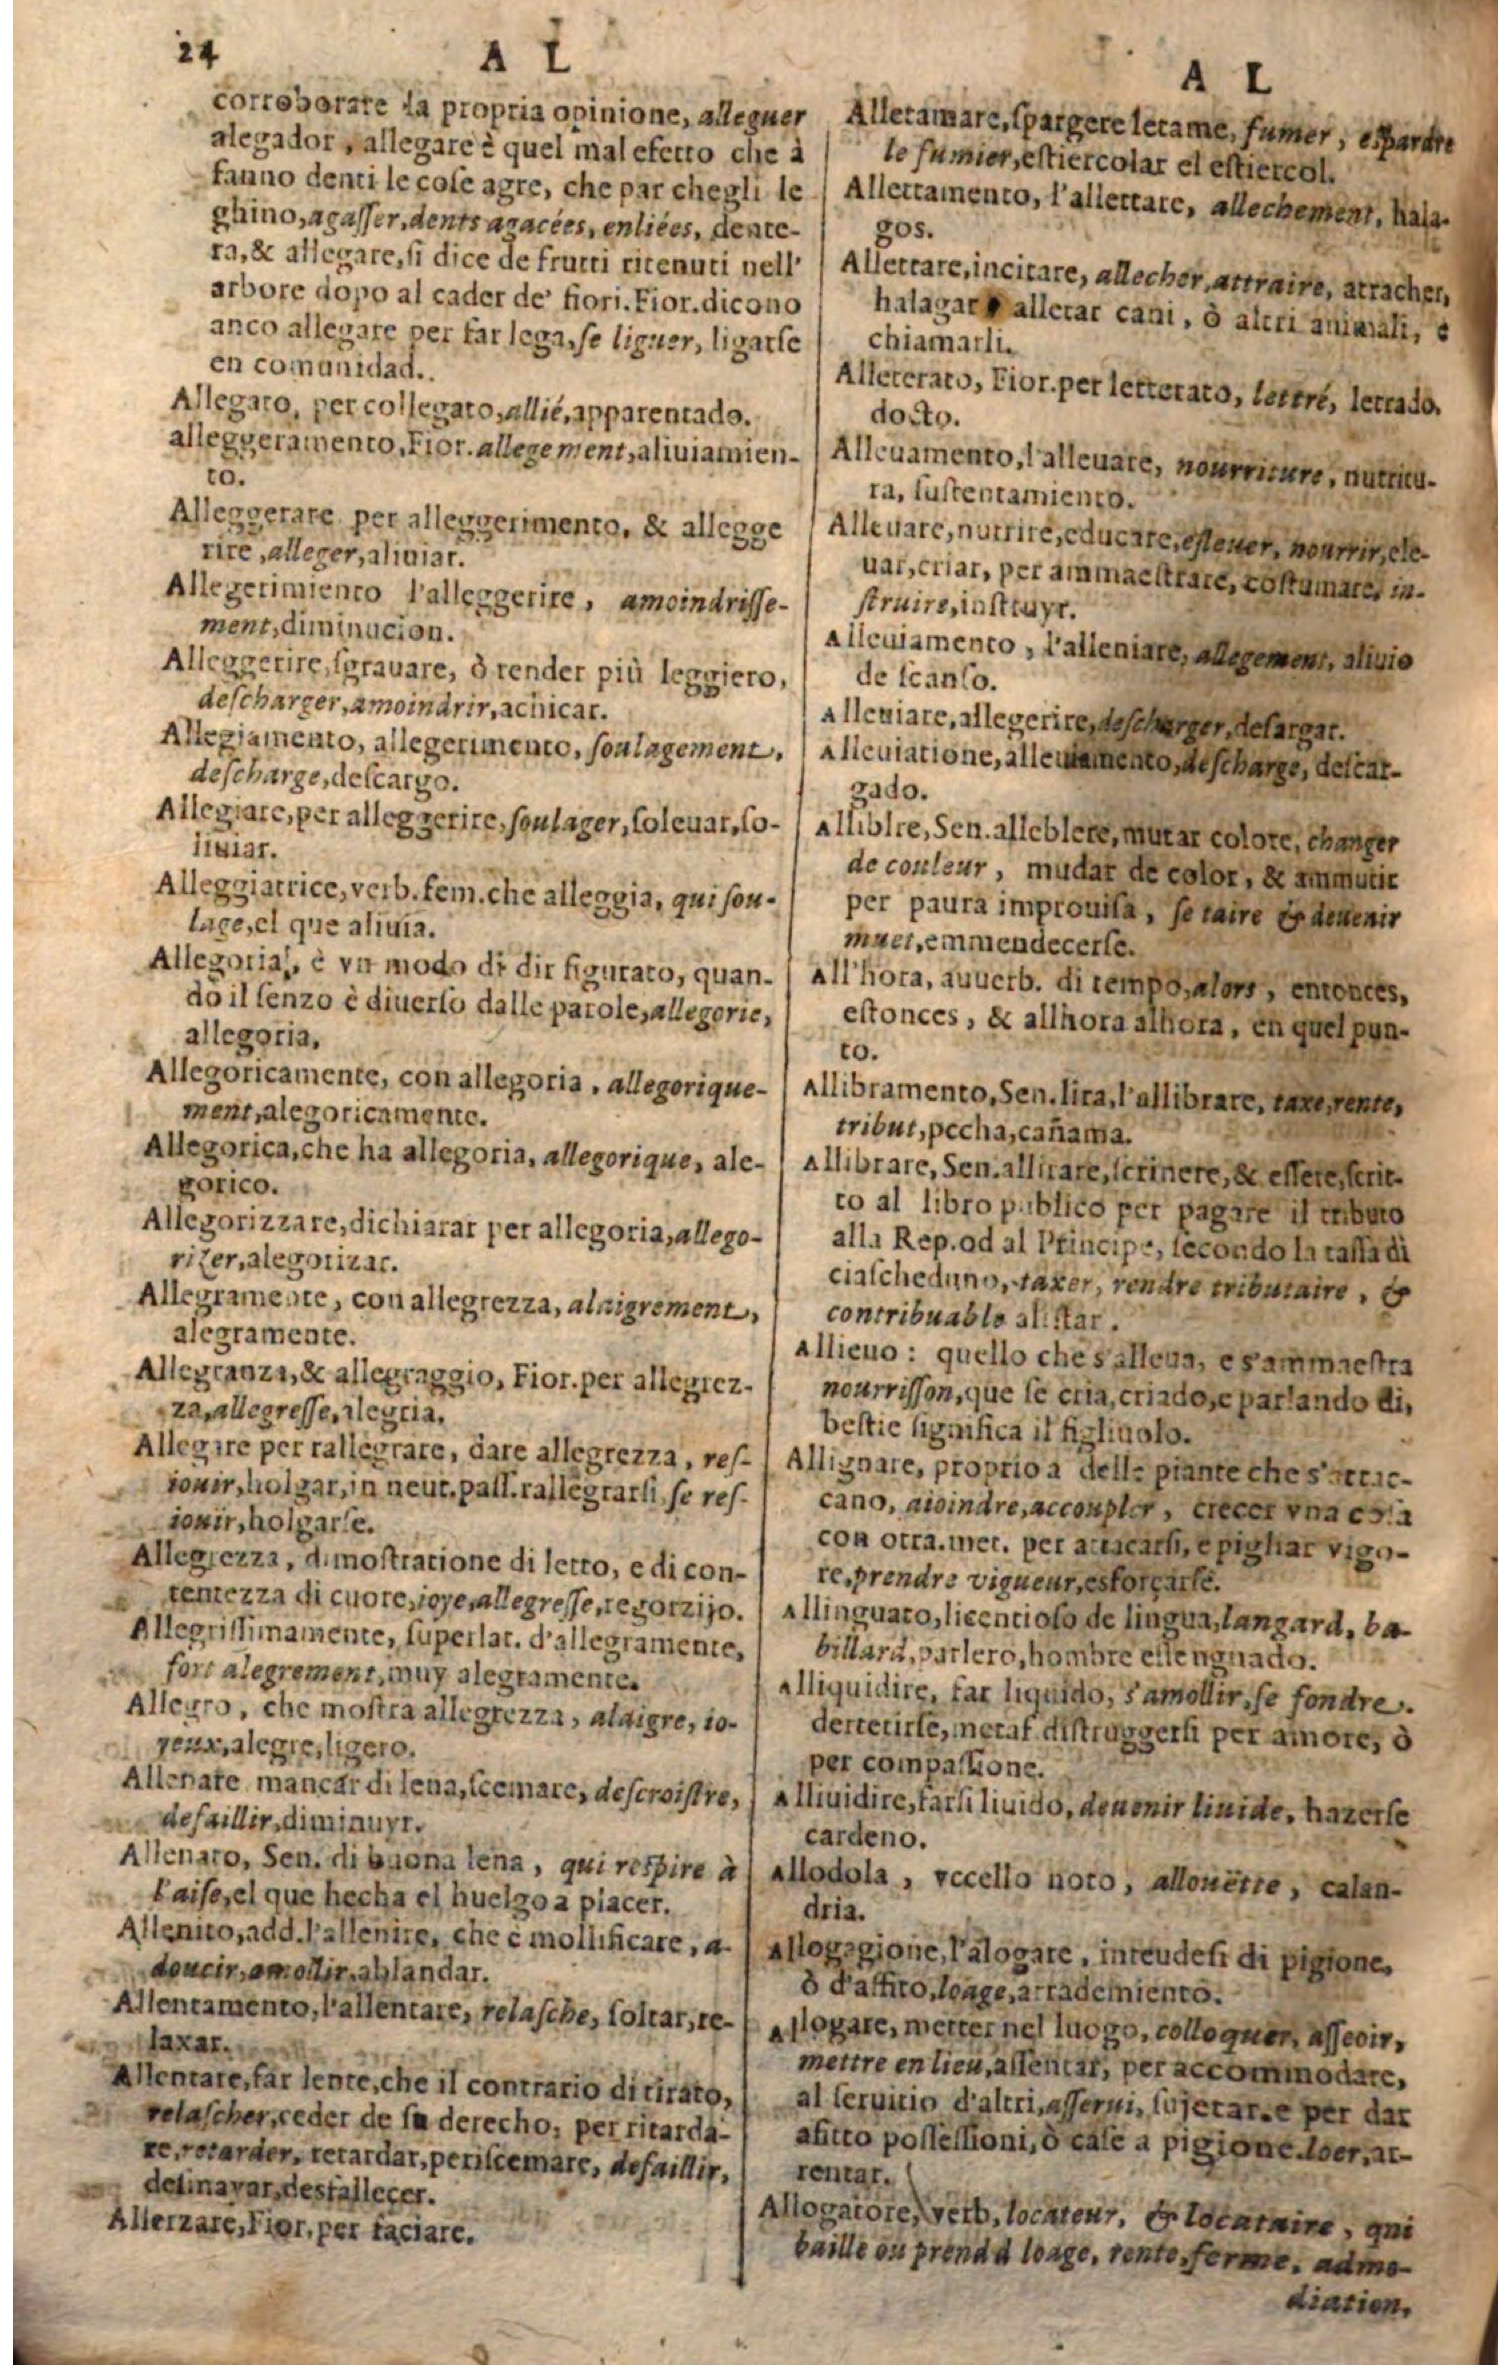 24
A L
corroborare la propria opinione, alleguer
alegador, allegare è quel mal efetto che à
fanno denti le cose agre, che par chegli le
ghino, agaſſer, dents agacées, enliées, dente-
ra, & allegare, ſi dice de frutti ritenuti nell'
arbore dopo al cader de' fiori. Fior. dicono
anco allegare per far lega, ſe liguer, ligarſe
en comunidad.
Allegato, per collegato, allié, apparentado.
alleggeramento, Fior. allegement, aliuiamien-
to.
Alleggerare per alleggerimento, & allegge
rire, alleger, aliuiar.
Allegerimiento l'alleggerire, amoindriſſe-
ment, diminucion.
Alleggerire, ſgrauare, ò render più leggiero,
deſcharger, amoindrir, achicar.
Allegiamento, allegerimento, ſoulagement,
deſcharge, deſcargo.
Allegiare, per alleggerire, ſoulager, ſoleuar, ſo-
liuiar.
Alleggiatrice, verb. fem. che alleggia, qui ſou-
lage, el que aliuia.
Allegoria, è vn modo di dir figurato, quan-
do il ſenzo è diuerſo dalle parole, allegorie,
allegoria.
Allegoricamente, con allegoria, allegorique-
ment, alegoricamente.
Allegorica, che ha allegoria, allegorique, ale-
gorico.
Allegorizzare, dichiarar per allegoria, allego-
rizer, alegorizar.
Allegramente, con allegrezza, alaigrement,
alegramente.
Allegranza, & allegraggio, Fior. per allegrez-
za, allegreſſe, alegria.
Allegare per rallegrare, dare allegrezza, reſ-
iouir, holgar, in neut. paſſ. rallegrarſi, ſe reſ-
iouïr, holgarſe.
Allegrezza, dimoſtratione di letto, e di con-
tentezza di cuore, ioye, allegreſſe, regorzijo.
Allegriſſimamente, ſuperlat. d'allegramente,
fort alegrement, muy alegramente.
Allegro, che moſtra allegrezza, alaigre, io-
yeux, alegre, ligero.
Allenare mancar di lena, ſcemare, deſcroiſtre,
defaillir, diminuyr.
Allenato, Sen. di buona lena, qui reſpire à
l'aiſe, el que hecha el huelgo a placer.
Allenito, add. l'allenire, che è mollificare, a-
doucir, amollir, ablandar.
Allentamento, l'allentare, relaſche, ſoltar, re-
laxar.
Allentare, far lente, che il contrario di tirato,
relaſcher, ceder de ſu derecho, per ritarda-
re, retarder, retardar, periſcemare, defaillir,
deſmayar, desfallecer.
Allerzare, Fior. per ſaciare.
A L
Alletamare, ſpargere letame, fumer, eſpardre
le fumier, eſtiercolar el eſtiercol.
Allettamento, l'allettare, allechement, hala-
gos.
Allettare, incitare, allecher, attraire, atracher,
halagar, alletar cani, ò altri animali, è
chiamarli.
Alleterato, Fior. per letterato, lettré, letrado,
docto.
Alleuamento, l'alleuare, nourriture, nutritu-
ra, ſuſtentamiento.
Alleuare, nutrire, educare, eſleuer, nourrir, ele-
uar, criar, per ammaeſtrare, coſtumare, in-
ſtruire, inſtruyr.
Alleuiamento, l'alleniare, allegement, aliuio
de ſcanſo.
Alleuiare, allegerire, deſcharger, deſargar.
Alleuiatione, alleuiamento, deſcharge, deſcar-
gado.
AlliblIre, Sen. alleblere, mutar colore, changer
de couleur, mudar de color, & ammutir
per paura improuiſa, ſe taire & deuenir
muet, emmendecerſe.
All'hora, auuerb. di tempo, alors, entonces,
eſtonces, & allhora alhora, en quel pun-
to.
Allibramento, Sen. lira, l'allibrare, taxe, rente,
tribut, pecha, cañama.
Allibrare, Sen. allirare, ſcriuere, & eſſere, ſcrit-
to al libro publico per pagare il tributo
alla Rep. od al Principe, ſecondo la taſſa di
ciaſcheduno, taxer, rendre tributaire, &
contribuable aliſtar.
Allieuo: quello che s'alleua, e s'ammaeſtra
nourriſſon, que ſe cria, criado, e parlando di,
beſtie ſignifica il figliuolo.
Allignare, proprio a delle piante che s'attac-
cano, aioindre, accoupler, crecer vna coſa
con otra. met. per attacarſi, e pigliar vigo-
re, prendre vigueur, esforçarſe.
Allinguato, licentioſo de lingua, langard, ba-
billard, parlero, hombre eſlenguado.
Alliquidire, far liquido, s'amollir, ſe fondre.
derretirſe, metaf. diſtruggerſi per amore, ò
per compaſſione.
Alliuidire, farſi liuido, deuenir liuide, hazerſe
cardeno.
Allodola, vccello noto, allouëtte, calan-
dria.
Allogagione, l'alogare, intendeſi di pigione,
ò d'affito, loage, arrademiento.
Allogare, metter nel luogo, colloquer, aſſeoir,
mettre en lieu, aſſentar, per accommodare,
al ſeruitio d'altri, aſſerui, ſujetar. e per dar
afitto poſſeſſioni, ò caſe a pigione. loer, ar-
rentar.
Allogatore, verb, locateur, & locataire, qui
baille ou prend à loage, rente, ferme, admo-
diation,